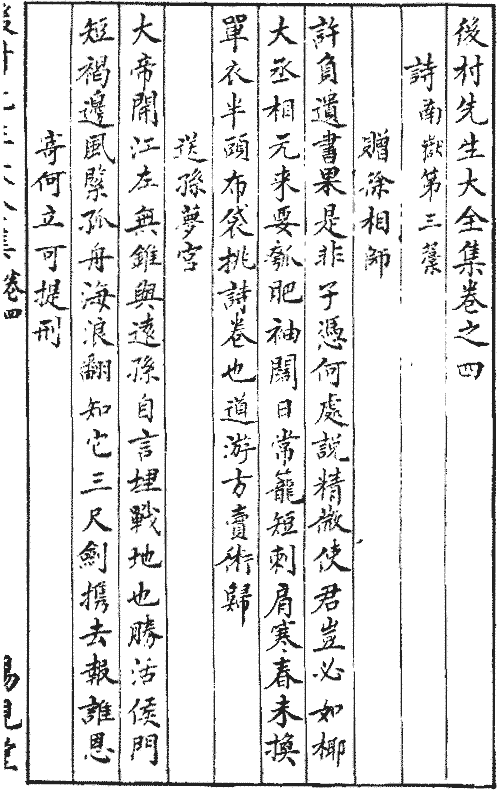 後村先生大全集卷之四
詩南嶽第三藁
贈徐相師
許負遺書果是非子憑何處説精微使君豈必如椰
大丞相元来要瓠肥袖闊日常籠短刺肩寒春未換
單衣半頭布袋挑詩卷也道游方賣術歸
送孫夢宫
大帝開江左無錐與遠孫自言埋戰地也勝活侯門
短褐邊風緊孤舟海浪翻知它三尺劍携去報誰恩
寄何立可提刑
卷四
賜